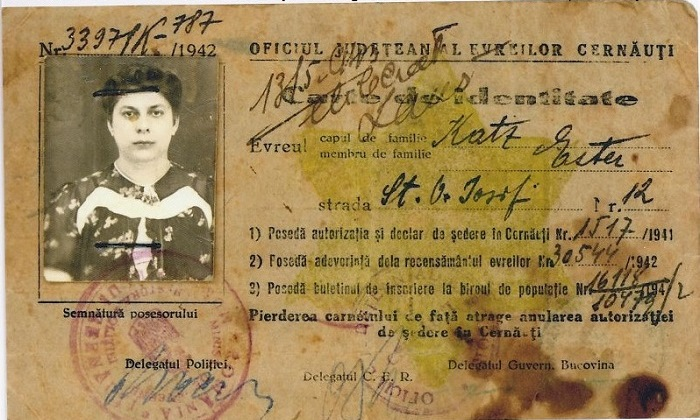 Nr. 33971/K-787 /1942
OFICIUL JUDEȚEAN AL EVREILOR CERNĂUȚI
Carte de identitate
Evreul capul de familie Katz
membru de familie Ester
strada St. O. Iosif Nr. 12
1) Posedă autorizația și declar de ședere în Cernăuți Nr. 1517 /1941
2) Posedă adeverință dela recensământul evreilor Nr. 30544 /942
3) Posedă buletinul de înscriere la biroul de populație Nr. /194
Pierderea carnetului de față atrage anularea autorizației
de ședere în Cernăuți
Semnătură posesorului
Delegatul Poliției,
Delegatul C. E. R.
Delegatul Guvern. Bucovina